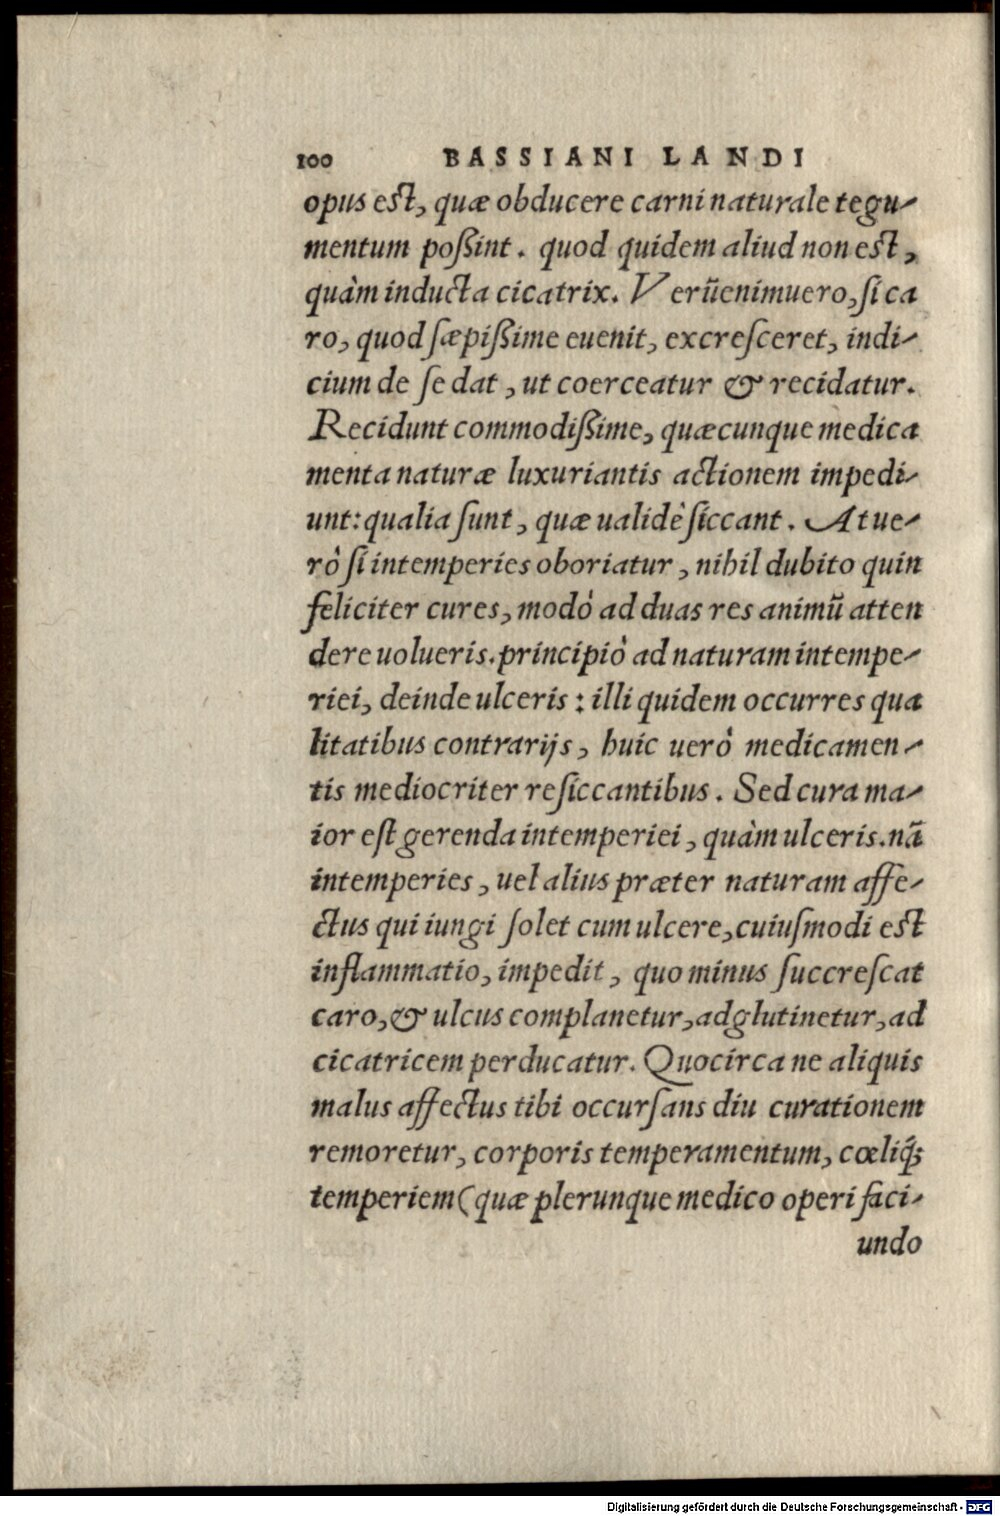 100 BASSIANI LANDI
opus est, quæ obducere carni naturale tegu-
mentum poßint. quod quidem aliud non est,
quàm inducta cicatrix. Verũenimuero, si ca
ro, quod sæpißime euenit, excresceret, indi-
cium de se dat, ut coerceatur & recidatur.
Recidunt commodißime, quæcunque medica
menta naturæ luxuriantis actionem impedi-
unt: qualia sunt, quæ ualidè siccant. At ue-
rò si intemperies oboriatur, nihil dubito quin
feliciter cures, modò ad duas res animũ atten
dere uolueris. principiò ad naturam intempe-
riei, deinde ulceris: illi quidem occurres qua
litatibus contrarijs, huic uerò medicamen-
tis mediocriter resiccantibus. Sed cura ma-
ior est gerenda intemperiei, quàm ulceris. nã
intemperies, uel alius præter naturam affe-
ctus qui iungi solet cum ulcere, cuiusmodi est
inflammatio, impedit, quo minus succrescat
caro, & ulcus complanetur, adglutinetur, ad
cicatricem perducatur. Quocirca ne aliquis
malus affectus tibi occursans diu curationem
remoretur, corporis temperamentum, cœliq́;
temperiem (quæ plerunque medico operi faci-
undo
Digitalisierung gefördert durch die Deutsche Forschungsgemeinschaft - DFG